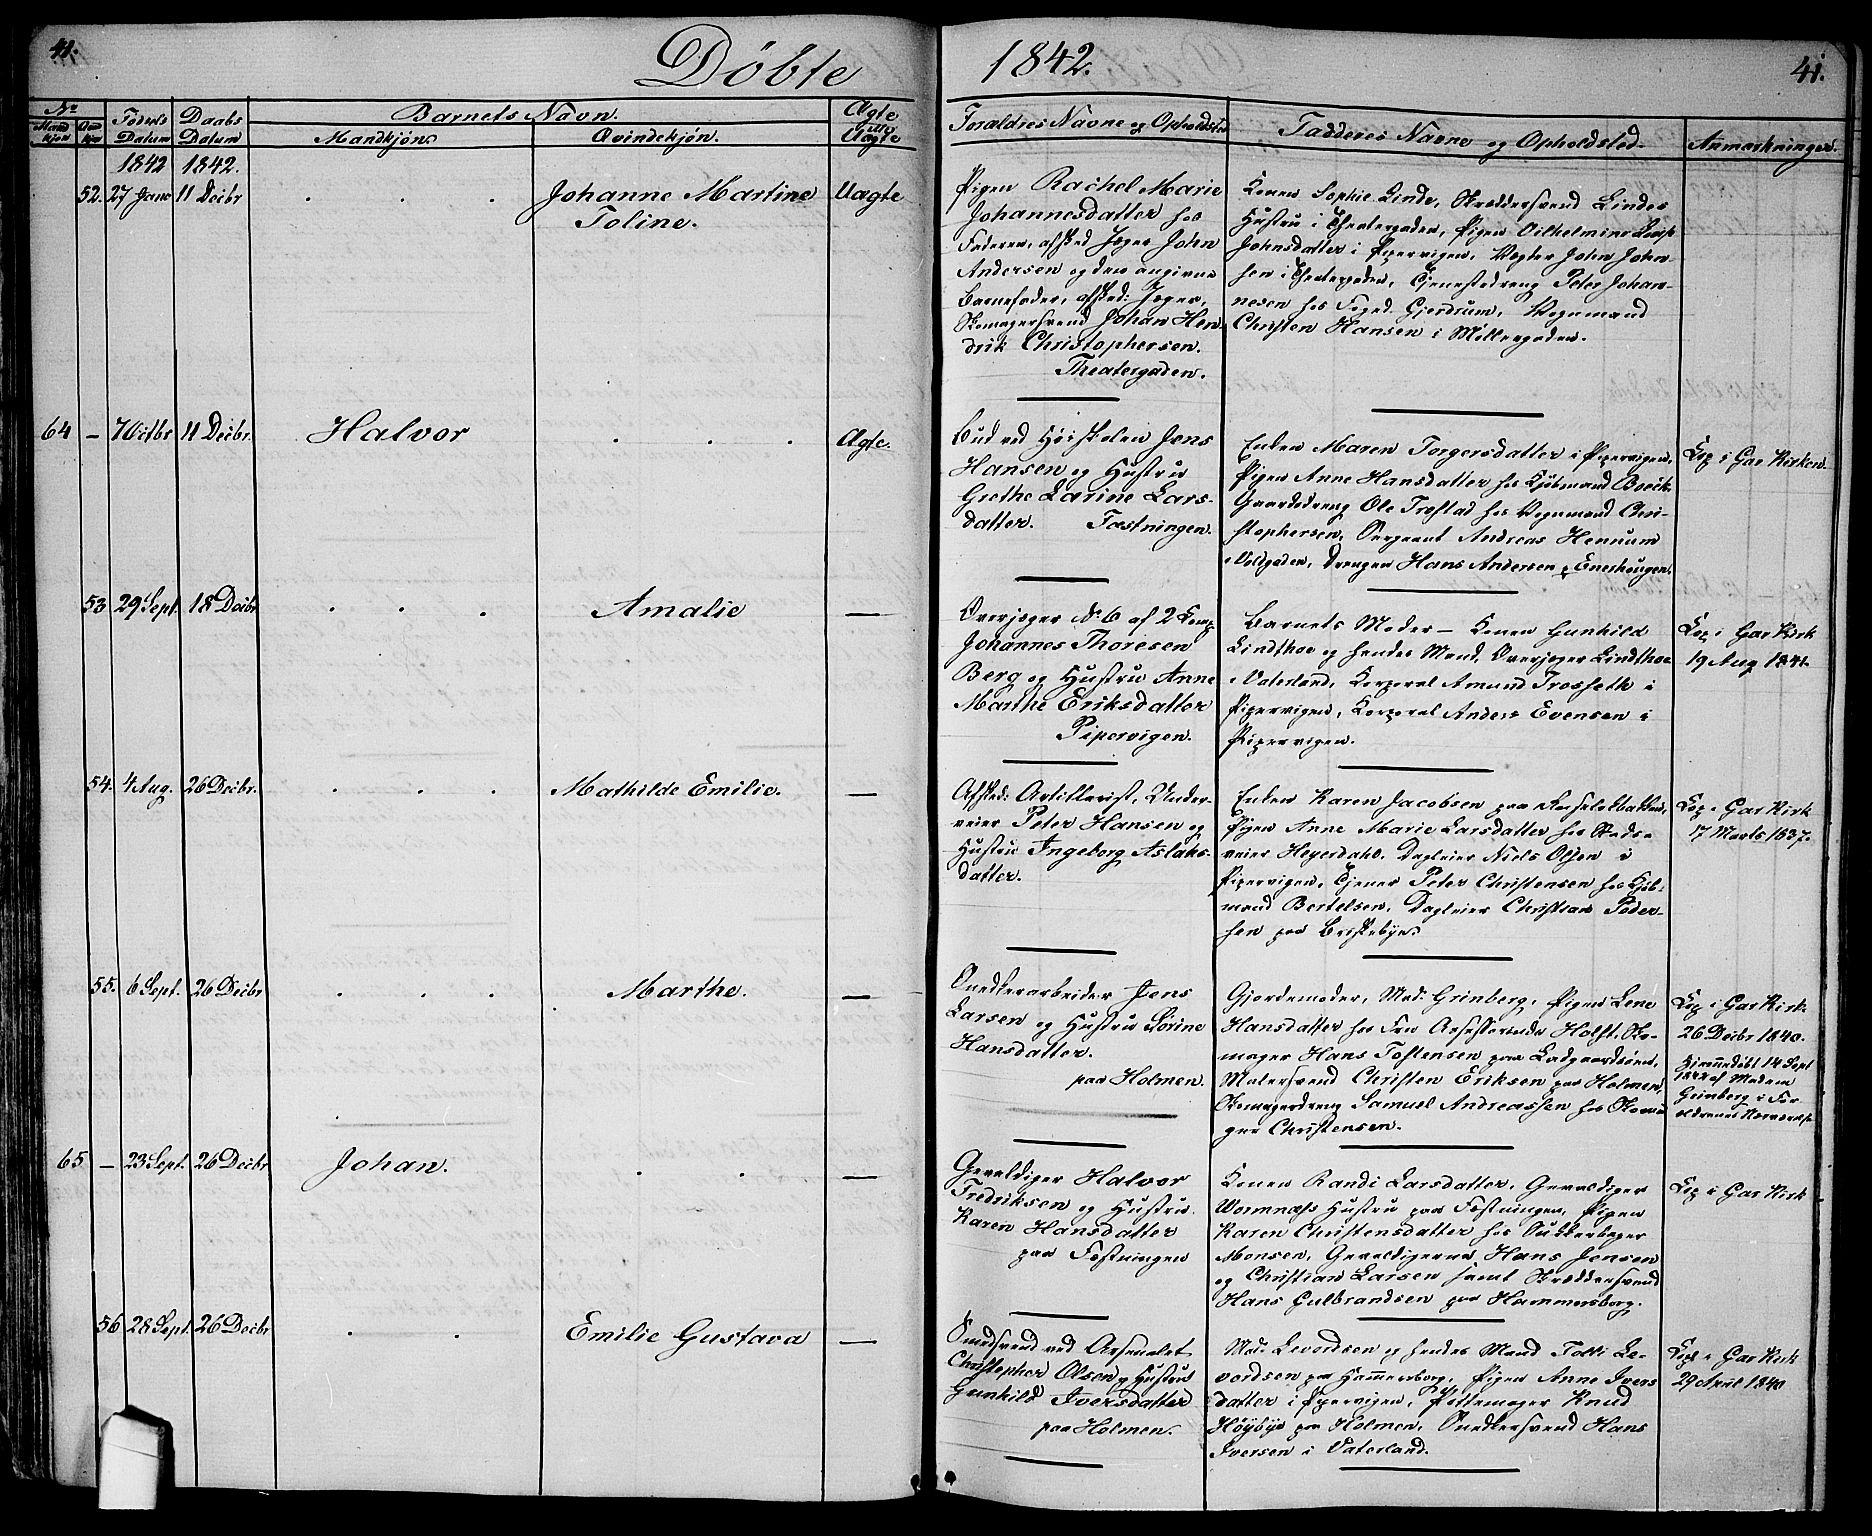 41.
Döbte
1842.
41.
No
Mand kjön
Qvin kjön
Föderls Datum
Daabs Datum
Barnets Navn.
Mandkjön.
Qvindekjön.
Ægte eller Uægte
Foræld​res Navne og Opholdsted
Fadderes Navne og Opholdsted
Anmærkninger.
1842 1842.
52. 27 Janr 11 Decbr
Johanne Martine
Toline.
Uægte
Pigen Rachel Marie
Johannesdatter hos
Faderen, afsked Jæger John
Andersen og den angivne
Barnefader, afsked: Jæger,
Skomagersvend Johan Hen
drik Christophersen.
Theatergaden.
Konen Sophie Linde, Skræddersvend Lindes
Hustru i Theatergaden, Pigen Vilhelmine
Johnsdatter i Pipervigen, Vægter John John-
sen i Theatergaden, Tjenestedreng Peter Johan-
nesen hos Foged Gjerdrum, Vognmand
Christen Hansen i Möllergaden.
64 – 7 Octbr 11 Decbr.
Halvor
Ægte.
Bud ved Höiskolen Jens
Hansen og Hustru
Grethe Larine Lars-
datter. Fæstningen.
Enken Maren Torgersdatter i Pipervigen,
Pigen Anne Hansdatter hos Kjöbmand Boeck
Gaardsdreng Ole Trostad hos Vognmand Chri-
stophersen, Sergeant Andreas Hennum
i Voldgaden, Drengen Hans Andersen p Enerhougen.
Cop i Gar Kirken
53 29 Sept. 18 Decbr
Amalie
—
Overjæger No 6 af 2 Comp
Johannes Thoresen
Berg og Hustru Anne
Marthe Eriksdatter
Pipervigen.
Barnets Moder – Konen Gunhild
Lindthoe og hendes Mand, Overjæger Lindthoe
i Vaterland, Korporal Amund Trosseth i
Pipervigen, Korporal Anders Evensen i
Pipervigen.
Cop i Gar Kirk
19 Aug 1841.
54. 4 Aug. 26 Decbr.
Mathilde Emilie.
—
Afsked: Artillerist, Under-
veier Peter Hansen og
Hustru Ingeborg Aslaks-
datter.
Enken Karen Jacobsen paa
Pigen Anne Marie Larsdatter hos Stads-
veier Heyerdahl. Dagleier Niels Olsen i
Pipervigen, Tjener Peter Christensen hos Kjöb-
mand Bertelsen, Dagleier Christian Peder-
sen paa Briskebyen
Cop i Gar Kirk
17 Marts 1837.
55. 6 Sept. 26 Decbr
Marthe.
—
Snedkerarbeider Jens
Larsen og Hustru Sörine
Hansdatter.
paa Holmen.
Gjordemoder, Mad: Grinberg, Pigen Lene
Hansdatter hos Fru Assessorinde Holst. Sko-
mager Hans Tostensen paa Ladgaardsöen,
Malersvend Christen Eriksen paa Holmen,
Skomagerdreng Samuel Andreassen hos Skoma
ger Christensen.
Cop i Gar Kirk
26 Decbr 1840.
Hjemmedöbt 14 Sept
1842 af Madam
Grinberg i For
ældrenes
65 – 23 Sept. 26 Decbr
Johan.
—
Gevaldiger Halvor
Fredriksen og Hustru
Karen Hansdatter
paa Fæstningen
Konen Randi Larsdatter, Gevaldiger
Wormnæss Hustru paa Fæstningen, Pigen
Karen Christensdatter hos Sukkerbager
Monsen, Gevaldigerne Hans Jensen
og Christian Larsen samt Skræddersvend
Hans Gulbrandsen paa Hammersborg.
Cop i Gar Kirk
56 28 Sept. 26 Decbr
Emilie Gustava
—
Smedsvend ved Arsenalet
Christopher Olsen og Hustru
Gunhild Iversdatter
paa Holmen.
Mad: Levordsen og hendes Mand Tolli Le-
vordsen paa Hammersborg, Pigen Anne Ivers
datter i Pipervigen, Pottemager Knud
Höybye paa Holmen, Snedkersvend Hans
Iversen i Vaterland.
Cop i Gar Kirk
29 April 1840